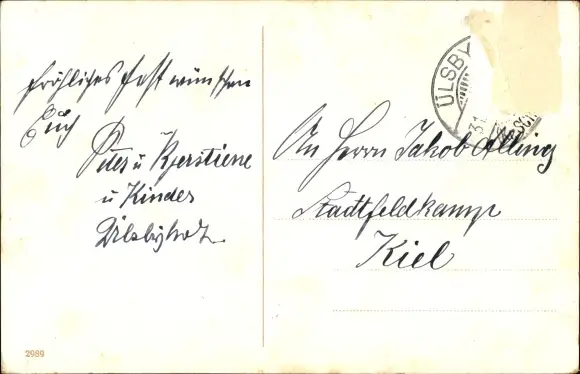 Fröhliches Fest wünschen
Euch
Peter u Kjerstiene
u Kinder
Ülsbyholz
ÜLSBY
31
An Herrn Jakob Alling
Stadtfeldkamp
Kiel
2989